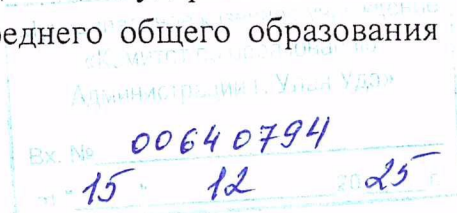 реднего общего образования
Администрации г. Улан-Удэ»
Вх. № 00640794
15 12 2025 г.